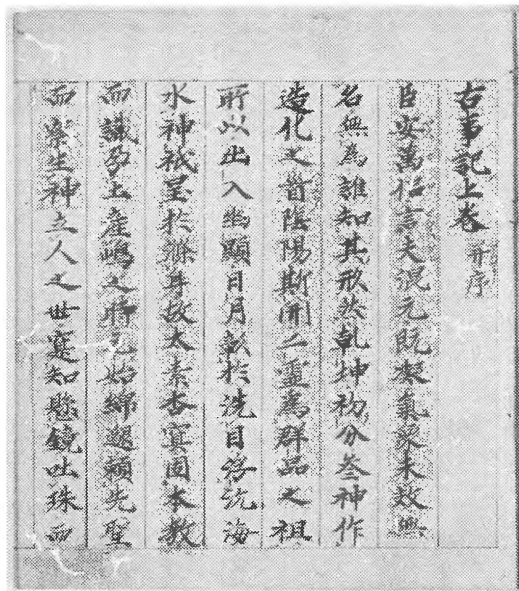 古事記上卷 并序
臣安萬侶言夫混元既凝氣象未效無
名無為誰知其形然乾坤初分叅神作
造化之首陰陽斯開二霊為群品之祖
所以出入幽顯日月彰於洗目浮沉海
水神祇呈於滌身故太素杳冥因本教
而識孕土産嶋之時元始綿邈頼先聖
而察生神立人之世寔知懸鏡吐珠而